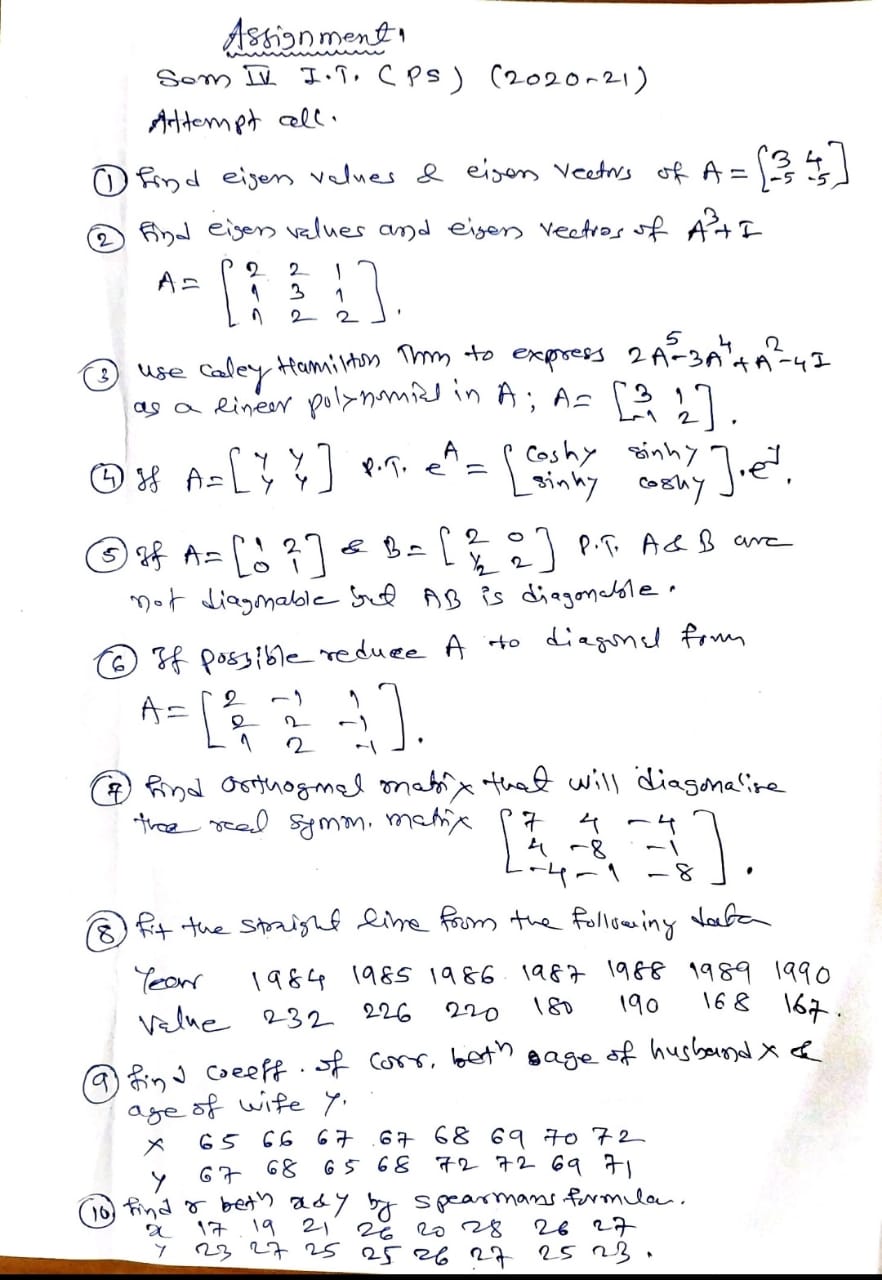 Assignment
Sem IV I.T. (PS) (2020-21)
Attempt all.
① Find eigen values & eigen vectors of A = [3 4]
-5 -5
② Find eigen values and eigen vectros of A³+I
A = [2 2 1
1 3 1
1 2 2].
③ use Caley Hamilton Thm to express 2A⁵-3A⁴+A²-4I
as a linear polynomial in A; A = [3 1
-1 2].
④ If A = [y y
y y] P.T. e^A = [coshy sinhy
sinhy coshy].e^y.
⑤ If A = [1 2
0 1] & B = [2 0
1/2 2] P.T. A & B are
not diagonable but AB is diagonable.
⑥ If possible reduce A to diagonal form
A = [2 -1 1
2 2 -1
1 2 -1].
⑦ Find orthogonal matrix that will diagonalise
the real symm. matrix [7 4 -4
4 -8 -1
-4 -1 -8].
⑧ Fit the straight line from the following data
Year 1984 1985 1986 1987 1988 1989 1990
Value 232 226 220 180 190 168 167.
⑨ find coeff. of corr. betn age of husband x &
age of wife y.
x 65 66 67 67 68 69 70 72
y 67 68 65 68 72 72 69 71
⑩ find r betn x & y by spearmans formula.
x 17 19 21 26 20 28 26 27
y 23 27 25 25 26 27 25 23.